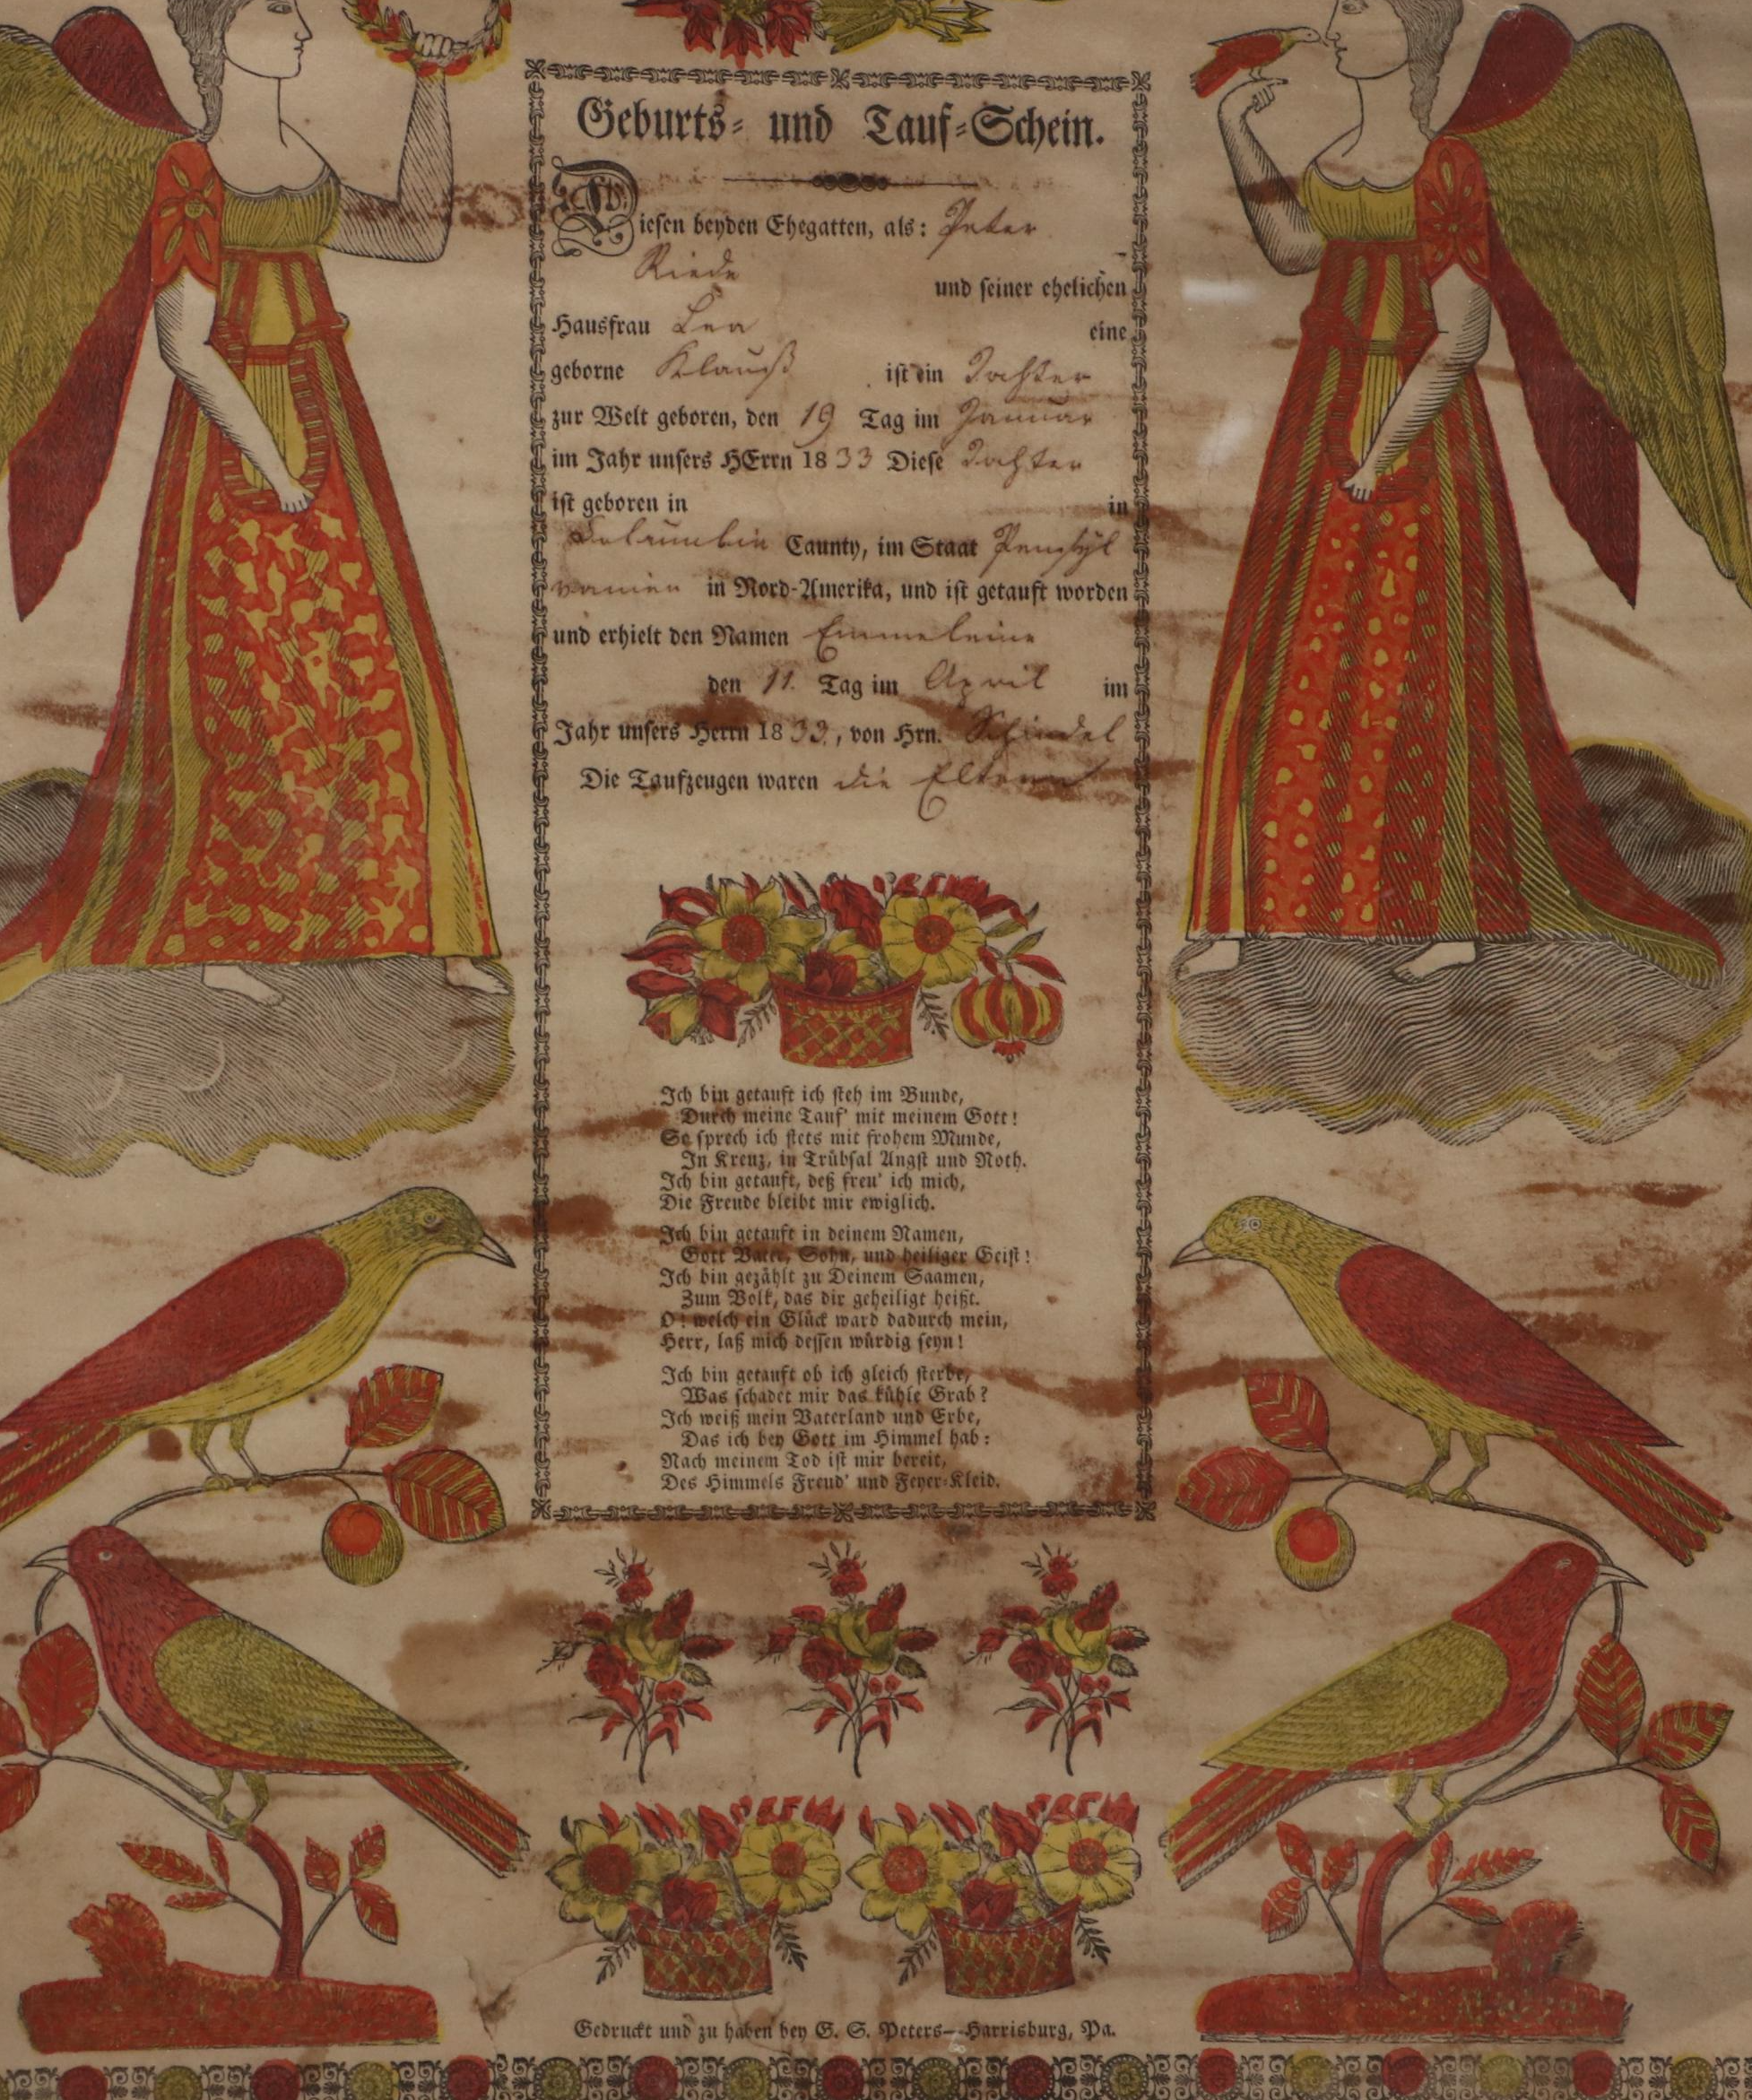 Geburts- und Tauf-Schein.
Diesen beyden Ehegatten, als: Peter
Riede und seiner ehelichen
Hausfrau Lea eine
geborne Klauß ist ein Tochter
zur Welt geboren, den 19 Tag im Januar
im Jahr unsers HErrn 1833 Diese Tochter
ist geboren in in
Columbia Caunty, im Staat Pensyl
vanien in Nord-Amerika, und ist getauft worden
und erhielt den Namen Emmeleine
den 11. Tag im April im
Jahr unsers Herrn 1833, von Hrn. Schindel
Die Taufzeugen waren die Eltern
Ich bin getauft ich steh im Bunde,
Durch meine Tauf' mit meinem Gott!
So sprech ich stets mit frohem Munde,
In Kreuz, in Trübsal Angst und Noth.
Ich bin getauft, deß freu' ich mich,
Die Freude bleibt mir ewiglich.
Ich bin getauft in deinem Namen,
Gott Vater, Sohn, und heiliger Geist!
Ich bin gezählt zu Deinem Saamen,
Zum Volk, das dir geheiligt heißt.
O! welch ein Glück ward dadurch mein,
Herr, laß mich dessen würdig seyn!
Ich bin getauft ob ich gleich sterbe,
Was schadet mir das kühle Grab?
Ich weiß mein Vaterland und Erbe,
Das ich bey Gott im Himmel hab:
Nach meinem Tod ist mir bereit,
Des Himmels Freud' und Feyer-Kleid.
Gedruckt und zu haben bey G. S. Peters—Harrisburg, Pa.